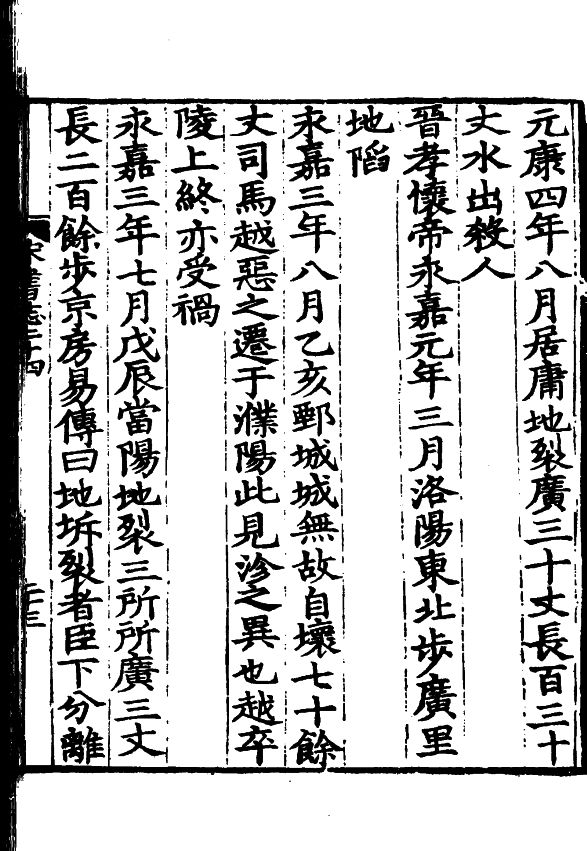 元康四年八月居庸地裂廣三十丈長百三十
丈水出殺人
晉孝懷帝永嘉元年三月洛陽東北步廣里
地䧟
永嘉三年八月乙亥鄄城城無故自壞七十餘
丈司馬越惡之遷于濮陽此見沴之異也越卒
陵上終亦受禍
永嘉三年七月戊辰當陽地裂三所所廣三丈
長二百餘步京房易傳曰地坼裂者臣下分離
宋書志二十四
二十三